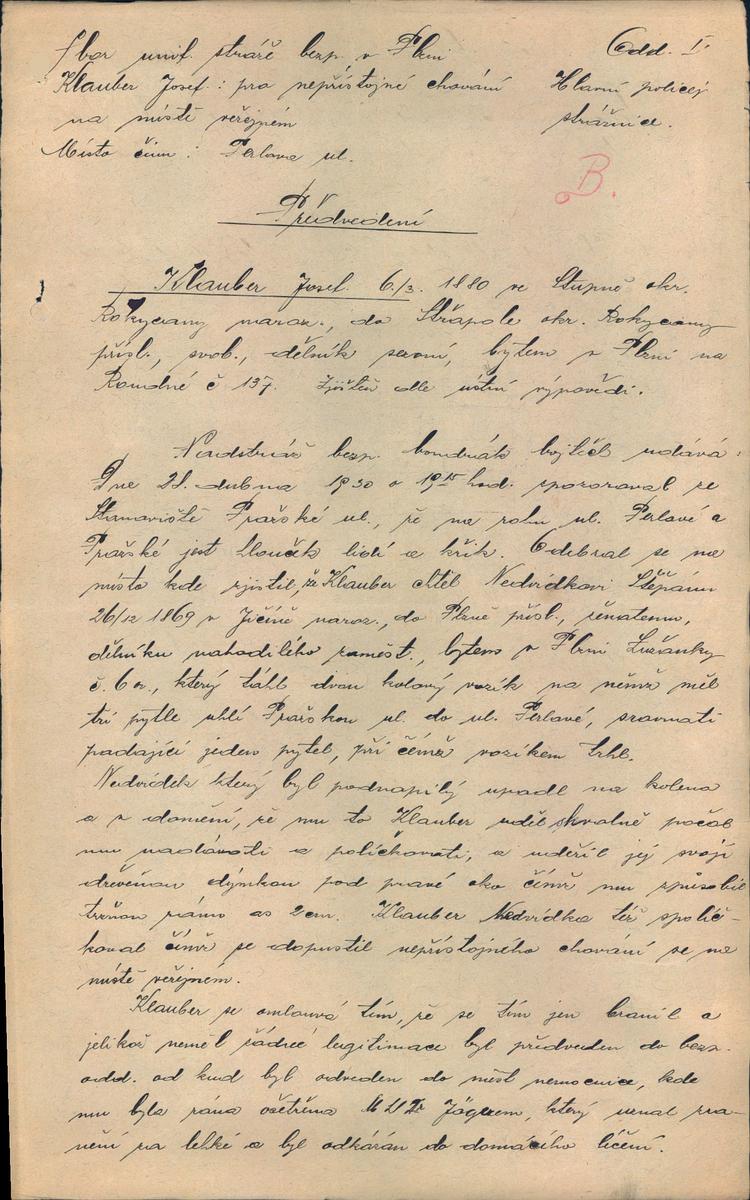 Sbor unif. stráže bezp. v Plzni Odd. I.
Klauber Josef: pro nepřístojné chování Hlavní policej
na místě veřejném strážnice.
Místo činu: Perlova ul.
B.
Předvedení
Klauber Josef. 6./3. 1880 ve Stupně okr.
Rokycany naroz., do okr. Rokycany
přísl., svob., dělník, bytem v Plzni na
Roudné č 137. Zjištěn dle ústní výpovědi.
Nadstráž. bezp. udává:
Dne 21. dubna 1930 o 19 15 hod. zpozoroval ze
Stanoviště Pražské ul., že na rohu ul. Perlové a
Pražské jest hlouček lidí a křik. Odebral se na
místo kde zjistil, že Klauber chtěl Nedvídkovi Štěpánu
26/12 1869 v Jičíně naroz., do Plzně přísl., ženatému,
dělníku nahodilého zaměst., bytem v Plzni Lužánky
č. 6 a., který táhl dvou kolový vozík na němž měl
tři pytle uhlí Pražskou ul. do ul. Perlové, srovnati
padající jeden pytel, při čemž vozíkem trhl.
Nedvídek který byl podnapilý upadl na kolena
a v domnění, že mu to Klauber uděl skválně počal
mu nadávati a políčkovati, a udeřil jej svojí
dřevěnou dýmkou pod pravé oko čímž mu způsobil
tržnou ránu as 2 cm. Klauber Nedvídka též spolíč-
koval čímž se dopustil nepřístojného chování se na
místě veřejném.
Klauber se omlouvá tím, že se tím jen bránil a
jelikož neměl řádné legitimace byl předveden do bezp.
odd. od kud byl odveden do měst nemocnice, kde
mu byla rána ošetřena MUDr Jägrem, který uznal zra-
nění za lehké a byl odkázán do domácího léčení.